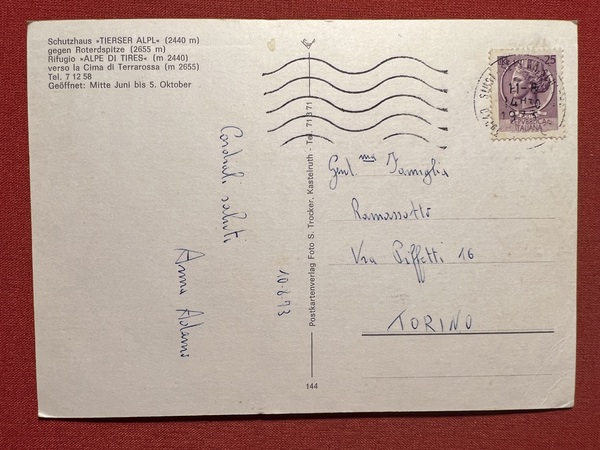 Schutzhaus »TIERSER ALPL« (2440 m)
gegen Roterdspitze (2655 m)
Rifugio »ALPE DI TIRES« (m 2440)
verso la Cima di Terrarossa (m 2655)
Tel. 7 12 58
Geöffnet: Mitte Juni bis 5. Oktober
Cordiali saluti
Anna Adams
10.8.73
Postkartenverlag Foto S. Trocker, Kastelruth - Tel. 71 3 71
144
25
ITALIANE
Gent ma Famiglia
Ramassotto
Via Piffetti 16
TORINO